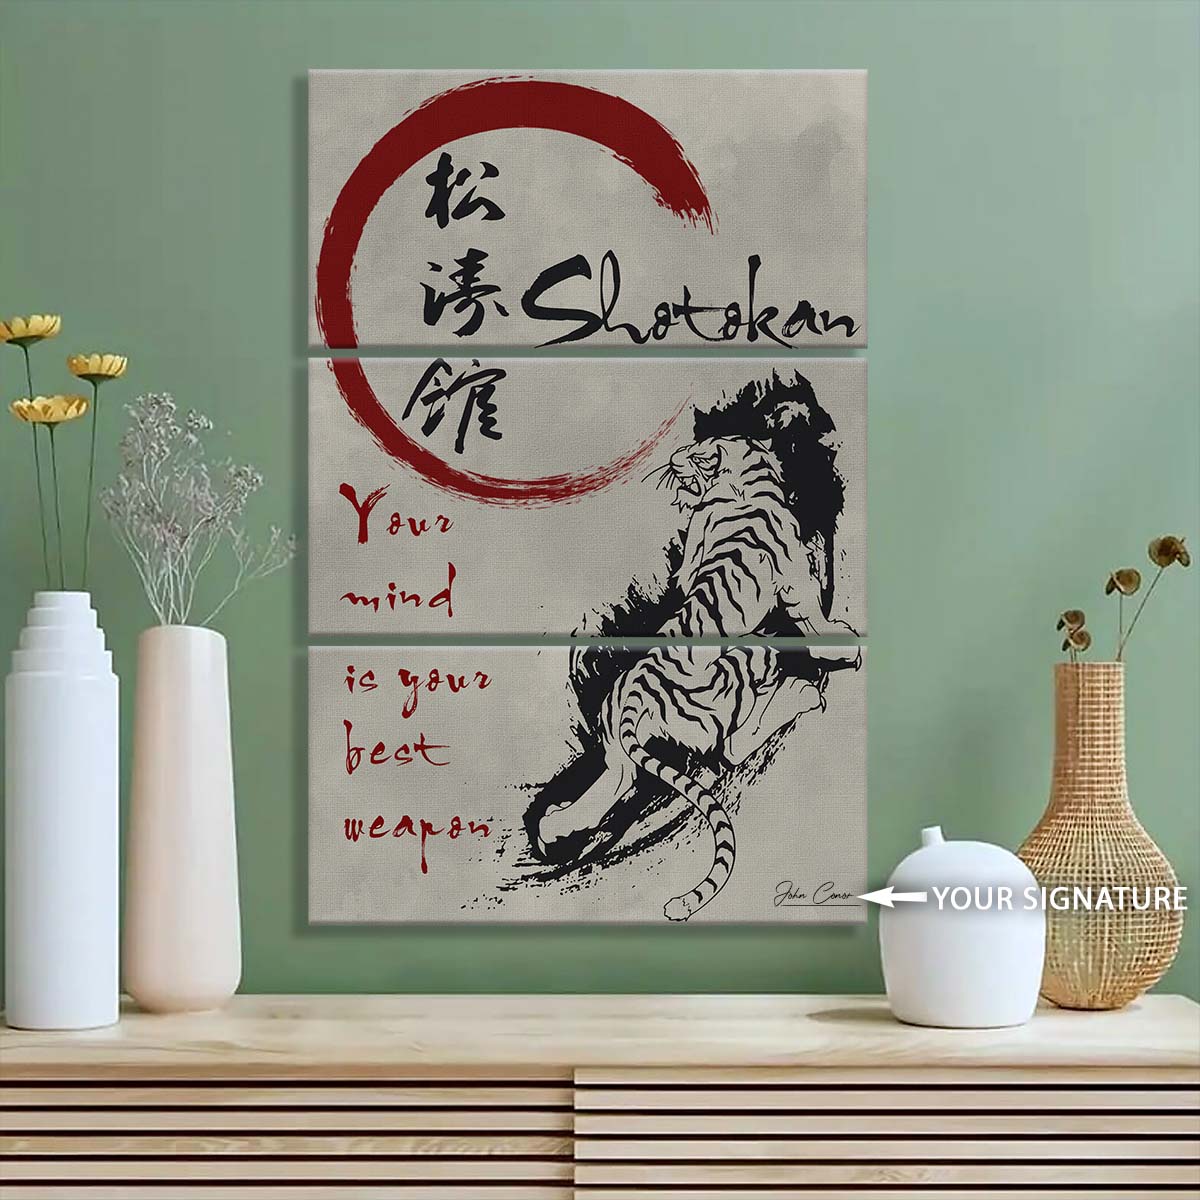 松
濤
館
Shotokan
Your
mind
is your
best
weapon
John Conor
YOUR SIGNATURE